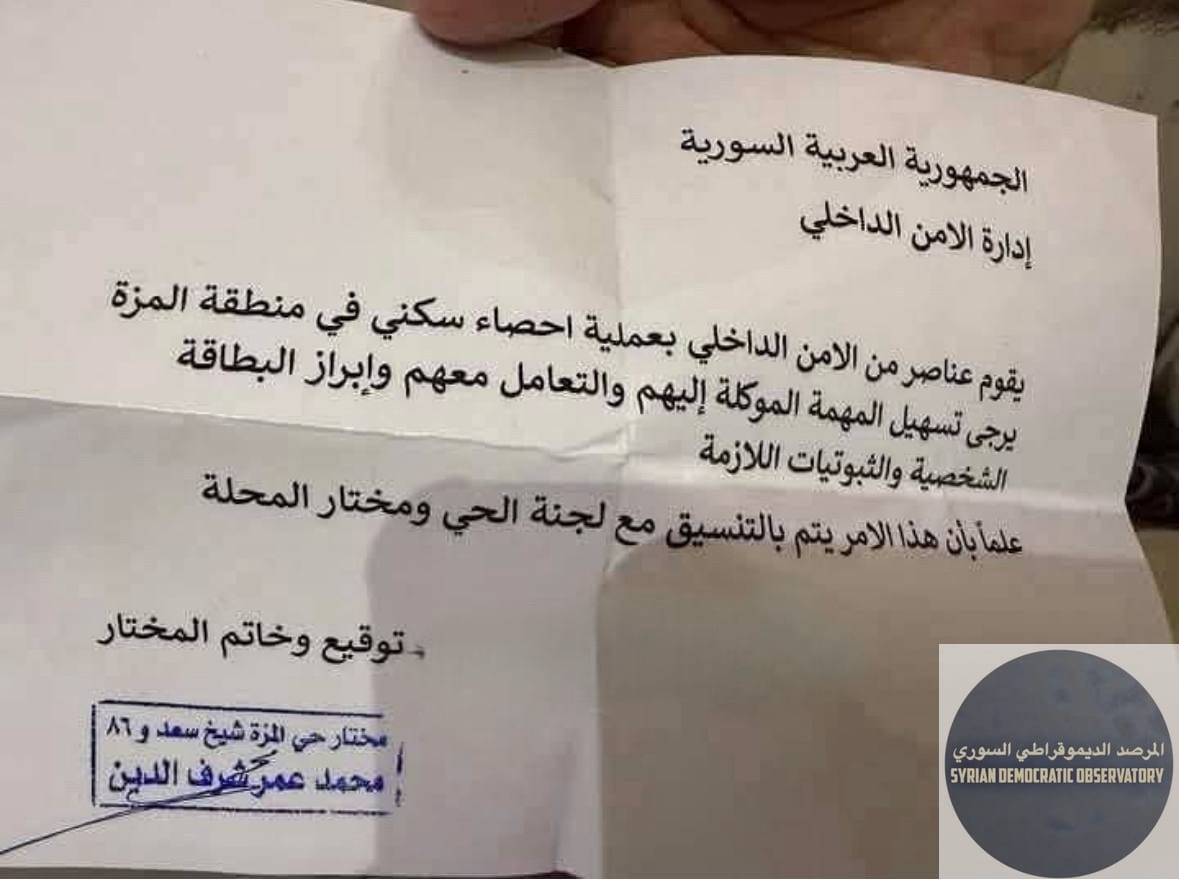 الجمهورية العربية السورية
إدارة الامن الداخلي
يقوم عناصر من الامن الداخلي بعملية احصاء سكني في منطقة المزة
يرجى تسهيل المهمة الموكلة إليهم والتعامل معهم وإبراز البطاقة
الشخصية والثبوتيات اللازمة
علماً بأن هذا الامر يتم بالتنسيق مع لجنة الحي ومختار المحلة
توقيع وخاتم المختار
مختار حي المزة شيخ سعد و ٨٦
محمد عمر شرف الدين
المرصد الديموقراطي السوري
SYRIAN DEMOCRATIC OBSERVATORY